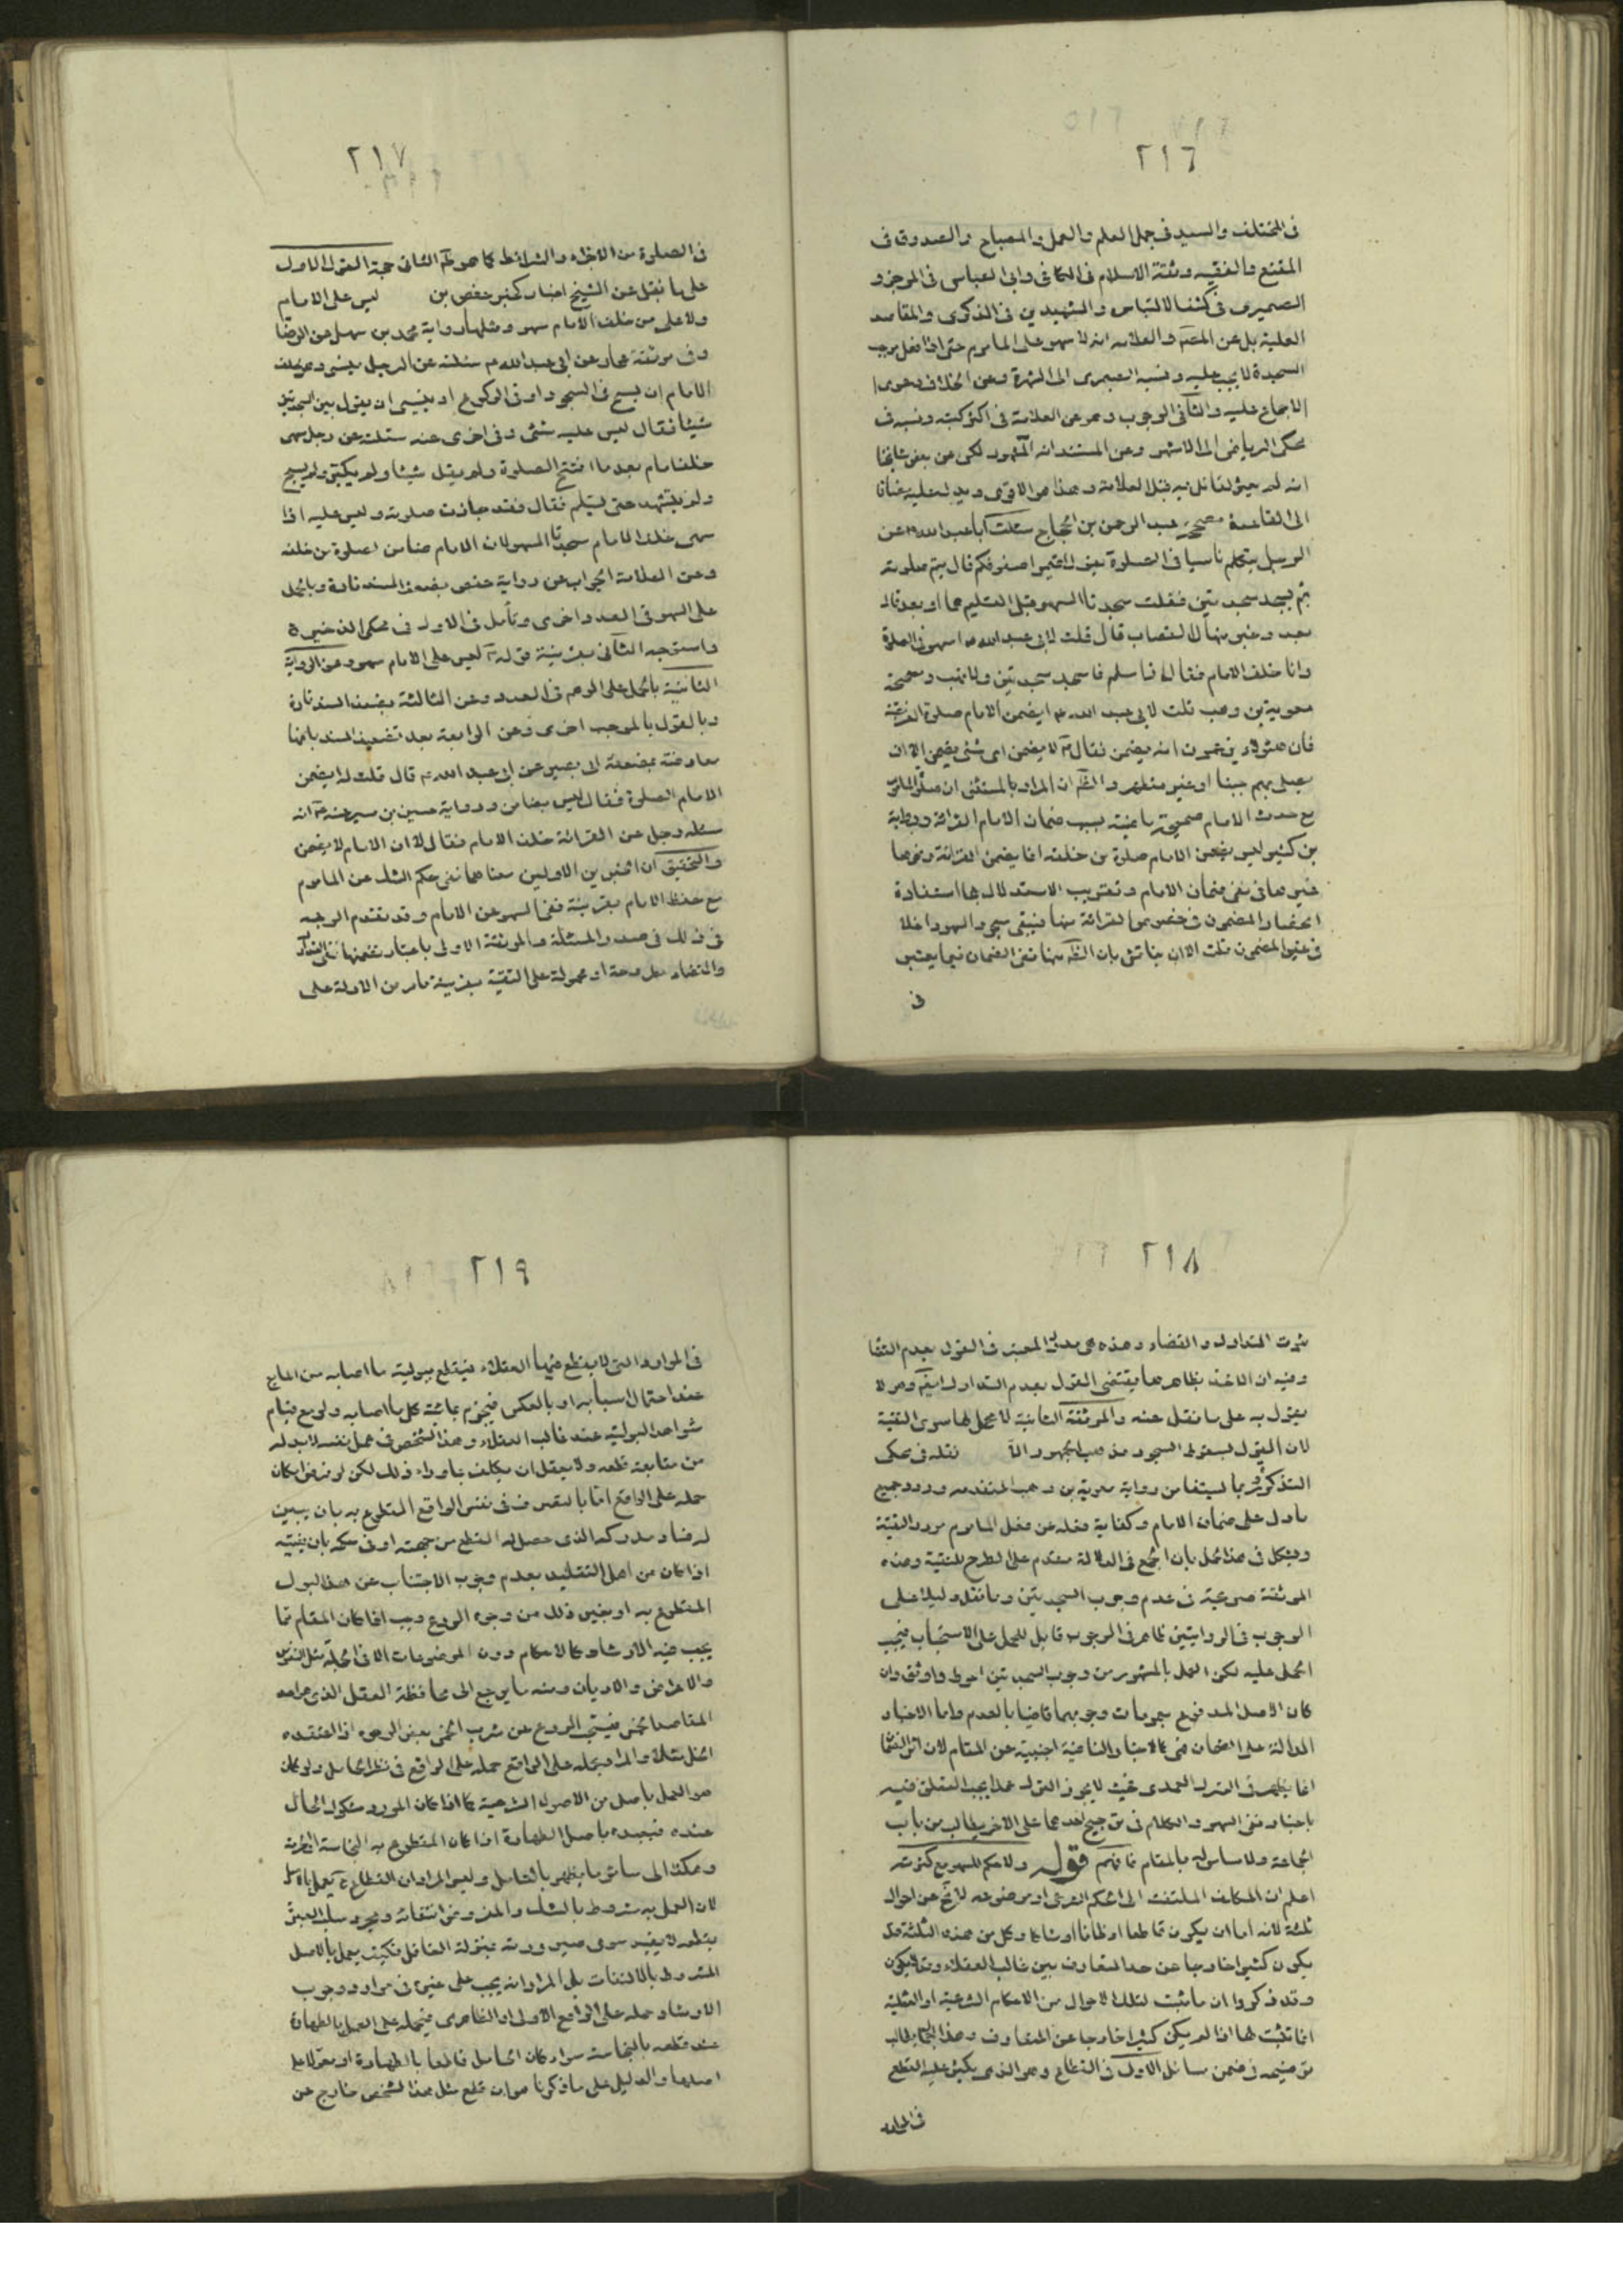 ٢١٦
فى المختلف والسيد فى جمل العلم والعمل والمصباح والصدوق فى
المقنع والفقيه وثقة الاسلام فى الكافى وابى العباس فى الموجز و
الصميرى فى كشف الالتباس والشهيدين فى الذكرى والمقاصد
العلية بل عن المعتبر والعلامه انه لا سهو على الماموم حتى اذا فعل موجب
السجدة لا يجب عليه ونسبه الصيمرى الى الشهرة وعن الخلاف دعوى
الاجماع عليه والثانى الوجوب وهو عن العلامة فى اكثر كتبه ونسبه فى
محكى الرياض الى الاشهر وعن المستند انه المشهور لكن عن بعض مشايخنا
انه لم يعثر لقائل به قبل العلامة وهذا هو الاقوى ويدل عليه مضافا
الى القاعدة صحيحة عبد الرحمن بن الحجاج سئلت ابا عبد الله ع عن
الرجل يتكلم ناسيا فى الصلوة يقول اقيموا صفوفكم قال يتم صلوته
ثم يسجد سجدتين فقلت سجدتا السهو قبل التسليم هما او بعد قال
بعد وخبر منهال القصاب قال قلت لابى عبد الله ع اسهو فى الصلوة
وانا خلف الامام فقال اذا سلم فاسجد سجدتين ولا تهب وصحيحة
معوية بن وهب قلت لابى عبد الله ع ايضمن الامام صلوة الفريضة
فان هؤلاء يزعمون انه يضمن فقال ع لا يضمن اى شئ يضمن الا ان
يصلى بهم جنبا او غير متطهر والظ ان المراد بالمستثنى ان صلوة الماموم
مع حدث الامام صحيحة ماضية بسبب ضمان الامام القرائة ورواية
بن كثير ليس يضمن الامام صلوة من خلفه انما يضمن القرائة ونحوها
غيرها فى نفى ضمان الامام وتقريب الاستدلال بها استفادة
انحصار المضمون فى خصوص القرائة منها فيبقى سجود السهو داخلا
فى غير المضمون قلت الا ان يناقش بان الظ منها نفى الضمان فيما يعتبر
فى
٢١٧
فى الصلوة من الاجزاء والشرائط كما هو ظ الثانى حجة القول الاول
على ما نقل عن الشيخ اخبار كخبر حفص بن ليس على الامام
ولا على من خلف الامام سهو ومثلها رواية محمد بن سهل عن الرضا
وفى موثقة عمار عن ابى عبد الله ع سئلته عن الرجل ينسى وهو خلف
الامام ان يسبح فى السجود او فى الركوع او ينسى ان يقول بين السجدتين
شيئا فقال ليس عليه شئ وفى اخرى عنه سئلته عن رجل سهى
خلف امام بعد ما افتتح الصلوة ولم يقل شيئا ولم يكبر ولم يسبح
ولم يتشهد حتى يسلم فقال فقد جازت صلوته وليس عليه اذا
سهى خلف الامام سجدتا السهو لان الامام ضامن لصلوة من خلفه
وعن العلامة الجواب عن رواية حفص بضعف السند تارة وبالحمل
على السهو فى العدد اخرى وتأمل فى الاول فى محكى الذخيرة
واستوجه الثانى بقرينة قوله ع ليس على الامام سهو وعن الرواية
الثانية بالحمل على الوهم فى العدد وعن الثالثة بضعف السند تارة
وبالقول بالموجب اخرى وعن الرابعة بعد تضعيف السند بانها
معارضة بضعفة ابى بصير عن ابى عبد الله ع قال قلت له ايضمن
الامام الصلوة فقال ليس بضامن ورواية حسين بن بسير عنه ع انه
سئله رجل عن القرائة خلف الامام فقال لا ان الامام لا يضمن
والتحقيق ان الخبرين الاولين معناهما نفى حكم الشك عن الماموم
مع حفظ الامام بقرينة نفى السهو عن الامام وقد تقدم الوجه
فى ذلك فى صدر المسئلة والموثقة الاولى باعتبار تضمنها نفى التدارك
والقضاء مطروحة او محمولة على التقية بقرينة مامر من الادلة على
٢١٨
ثبوت التدارك والقضاء وهذه هى مدرك المعتبر فى القول بعدم القضا
وفيه ان الاخذ بظاهرها يقتضى القول بعدم التدارك ايضا وهو لا
يقول به على ما نقل عنه والموثقة الثانية لا محمل لها سوى التقية
لان القول بسقوط السجود مذهب الجمهور الا نقله فى محكى
التذكرة وربما يستفا من رواية معوية بن وهب المتقدمه ورود جميع
ما دل على ضمان الامام وكفاية فعله عن فعل الماموم مورد التقية
ويشكل فى هذا الحمل بان الجمع فى الدلالة مقدم على الطرح للتقية وهذه
الموثقة صريحة فى عدم وجوب السجدتين وما نقل دليلا على
الوجوب فى الروايتين ظاهر فى الوجوب قابل للحمل على الاستحباب فيجب
الحمل عليه لكن العمل بالمشهور من وجوب السجدتين احوط واوثق وان
كان الاصل المدفوع بعمومات وجوبهما قاضيا بالعدم واما الاخبار
الدالة على الضمان فهى كالاخبار النافية اجنبية عن المقام لان اثر الضمان
انما يظهر فى الترك العمدى بحيث لا يجوز الترك عمدا يجب التعلق فيه
باخبار نفى السهو والكلام فى ترجيح احدهما على الاخر يطلب من باب
الجماعة ولا مساس له بالمقام فافهم قوله ولا حكم للسهو مع كثرته
اعلم ان المكلف الملتفت الى الحكم الشرعى او موضوعه لا يخ عن احوال
ثلثة لانه اما ان يكون قاطعا او ظانا او شاكا وكل من هذه الثلثة قد
يكون كثيرا خارجا عن حد المتعارف بين غالب العقلاء وقد لا يكون
وقد ذكروا ان ما ثبت لتلك الاحوال من الاحكام الشرعية او العقلية
انما تثبت لها اذا لم يكن كثيرا خارجا عن المتعارف وهذا اجمال يطلب
توضيحه فى ضمن مسائل الاول فى القطاع وهو الذى يكثر عليه القطع
فى الموارد
٢١٩
فى الموارد التى لا يقطع فيها العقلاء فيقطع ببولية ما اصابه من المايع
عند احتمال اسبابه او بالعكس فيجزم بمائية كل ما اصابه ولو مع قيام
شواهد البولية عند غالب العقلاء وهذا الشخص فى عمل نفسه لا بد له
من متابعة قطعه ولا يعقل ان يكلف بما وراء ذلك لكن لو فرض امكان
حمله على الواقع اما بالتصرف فى نفس الواقع المقطوع به بان يبين
له فساد مدركه الذى حصل له القطع من جهته او فى حكمه بان يفتيه
اذا كان من اهل التقليد بعدم وجوب الاجتناب عن هذا البول
المقطوع به او بغير ذلك من وجوه الردع وجب اذا كان المقام مما
يجب فيه الارشاد كالاحكام دون الموضوعات الا فى الجملة مثل النفوس
والاعراض والاديان ومنه ما يرجع الى محافظة العقل الذى هو احد
المقاصد الخمس فيجب الردع عن شرب الخمر ببعض الوجوه اذا اعتقده
الخل مثلا والمراد بحمله على الواقع حمله على الواقع فى نظر الحامل ولو كان
هو العمل باصل من الاصول الشرعية كما اذا كان المورد مشكوك الحال
عنده فيعبده باصل الطهارة اذا كان المقطوع به النجاسة
وهكذا الى سائر ما يظهر بالتامل وليس المراد ان القطاع يعمل بالاصل
لان العمل به مشروط بالشك والمفروض انتفائه ومجرد سلب العبرة
بقطعه لا يفيد سوى صيرورته بمنزلة الغافل فكيف يعمل بالاصل
المشروط بالالتفات بل المراد انه يجب على غيره فى موارد وجوب
الارشاد حمله على الواقع الاولى او الظاهرى فيحمله على العمل بالطهارة
عند قطعه بالنجاسة سواء كان الحامل قاطعا بالطهارة او معولا على
اصلها والدليل على ما ذكرنا هو ان قطع مثل هذا الشخص خارج عن